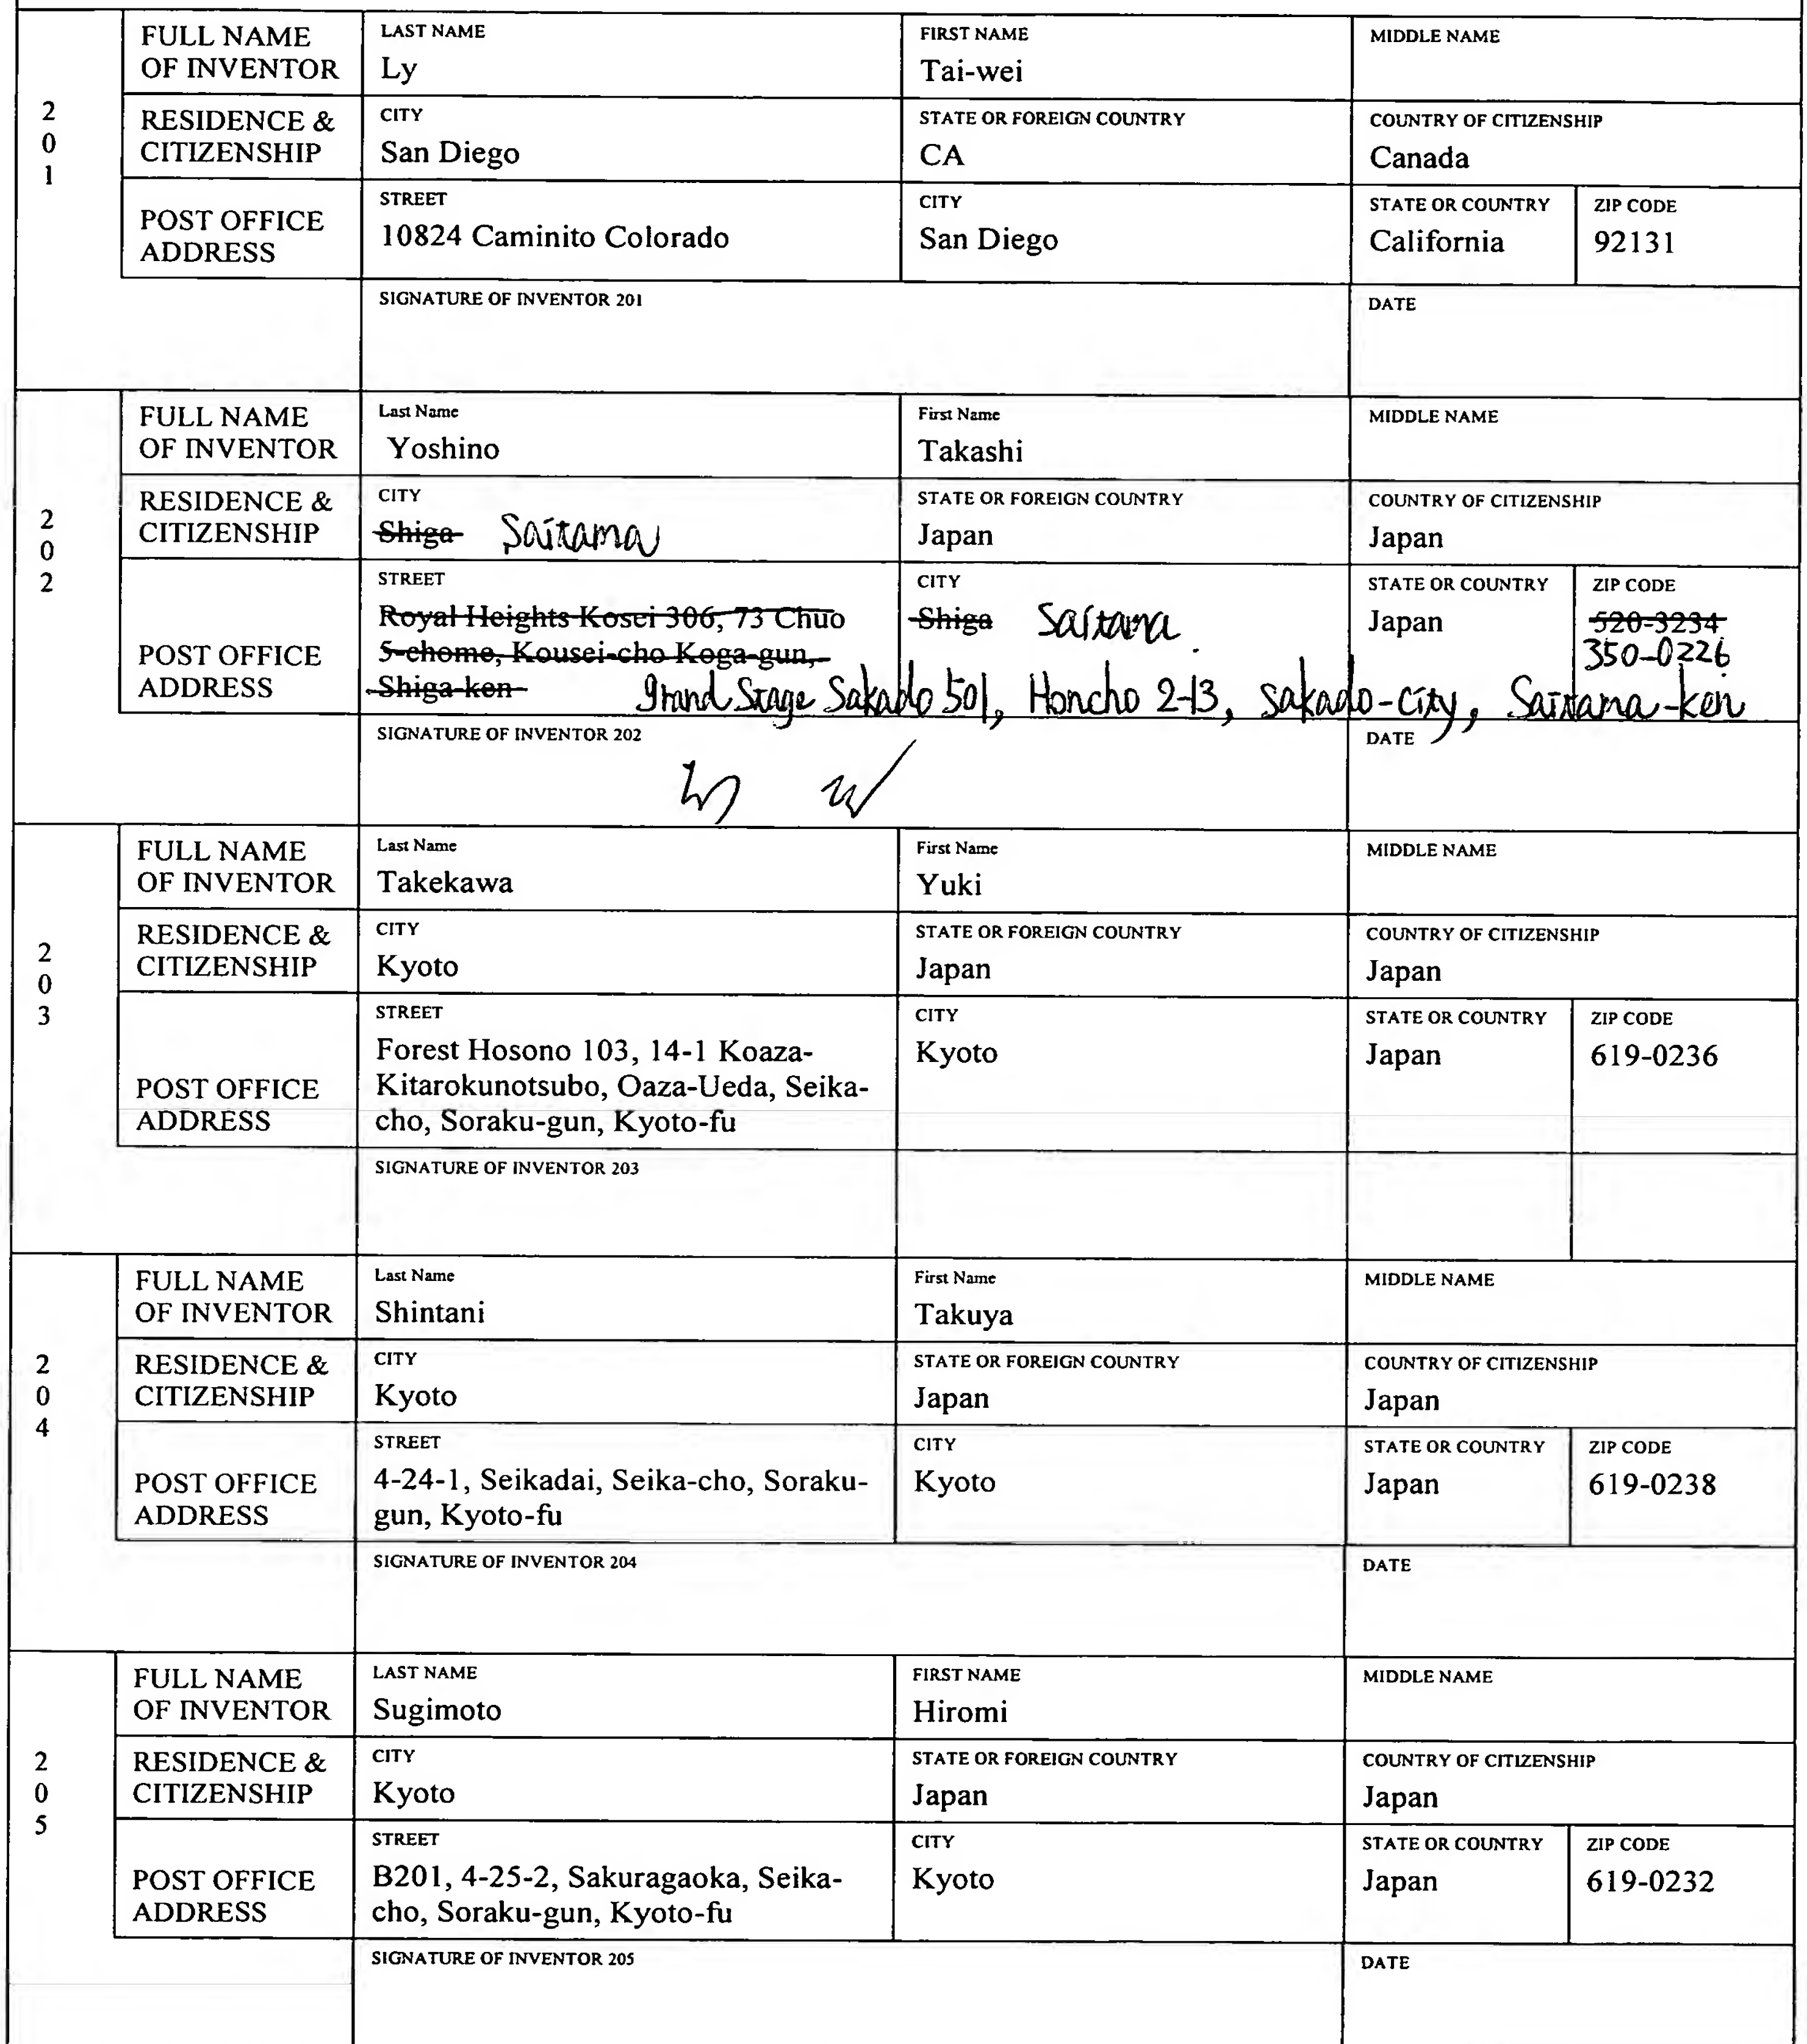 FULL NAME OF INVENTOR
LAST NAME
Ly
FIRST NAME
Tai-wei
MIDDLE NAME
201
RESIDENCE & CITIZENSHIP
CITY
San Diego
STATE OR FOREIGN COUNTRY
CA
COUNTRY OF CITIZENSHIP
Canada
POST OFFICE ADDRESS
STREET
10824 Caminito Colorado
CITY
San Diego
STATE OR COUNTRY
California
ZIP CODE
92131
SIGNATURE OF INVENTOR 201
DATE
FULL NAME OF INVENTOR
Last Name
Yoshino
First Name
Takashi
MIDDLE NAME
202
RESIDENCE & CITIZENSHIP
CITY
Shiga Saitama
STATE OR FOREIGN COUNTRY
Japan
COUNTRY OF CITIZENSHIP
Japan
POST OFFICE ADDRESS
STREET
Royal Heights Kosei 306, 73 Chuo
5-chome, Kousei-cho Koga-gun,
Shiga-ken
CITY
Shiga Saitama
STATE OR COUNTRY
Japan
ZIP CODE
520-3234
350-0226
Grand Stage Sakado 501, Honcho 2-13, Sakado-city, Saitama-ken
SIGNATURE OF INVENTOR 202
DATE
FULL NAME OF INVENTOR
Last Name
Takekawa
First Name
Yuki
MIDDLE NAME
203
RESIDENCE & CITIZENSHIP
CITY
Kyoto
STATE OR FOREIGN COUNTRY
Japan
COUNTRY OF CITIZENSHIP
Japan
POST OFFICE ADDRESS
STREET
Forest Hosono 103, 14-1 Koaza-
Kitarokunotsubo, Oaza-Ueda, Seika-
cho, Soraku-gun, Kyoto-fu
CITY
Kyoto
STATE OR COUNTRY
Japan
ZIP CODE
619-0236
SIGNATURE OF INVENTOR 203
FULL NAME OF INVENTOR
Last Name
Shintani
First Name
Takuya
MIDDLE NAME
204
RESIDENCE & CITIZENSHIP
CITY
Kyoto
STATE OR FOREIGN COUNTRY
Japan
COUNTRY OF CITIZENSHIP
Japan
POST OFFICE ADDRESS
STREET
4-24-1, Seikadai, Seika-cho, Soraku-
gun, Kyoto-fu
CITY
Kyoto
STATE OR COUNTRY
Japan
ZIP CODE
619-0238
SIGNATURE OF INVENTOR 204
DATE
FULL NAME OF INVENTOR
LAST NAME
Sugimoto
FIRST NAME
Hiromi
MIDDLE NAME
205
RESIDENCE & CITIZENSHIP
CITY
Kyoto
STATE OR FOREIGN COUNTRY
Japan
COUNTRY OF CITIZENSHIP
Japan
POST OFFICE ADDRESS
STREET
B201, 4-25-2, Sakuragaoka, Seika-
cho, Soraku-gun, Kyoto-fu
CITY
Kyoto
STATE OR COUNTRY
Japan
ZIP CODE
619-0232
SIGNATURE OF INVENTOR 205
DATE